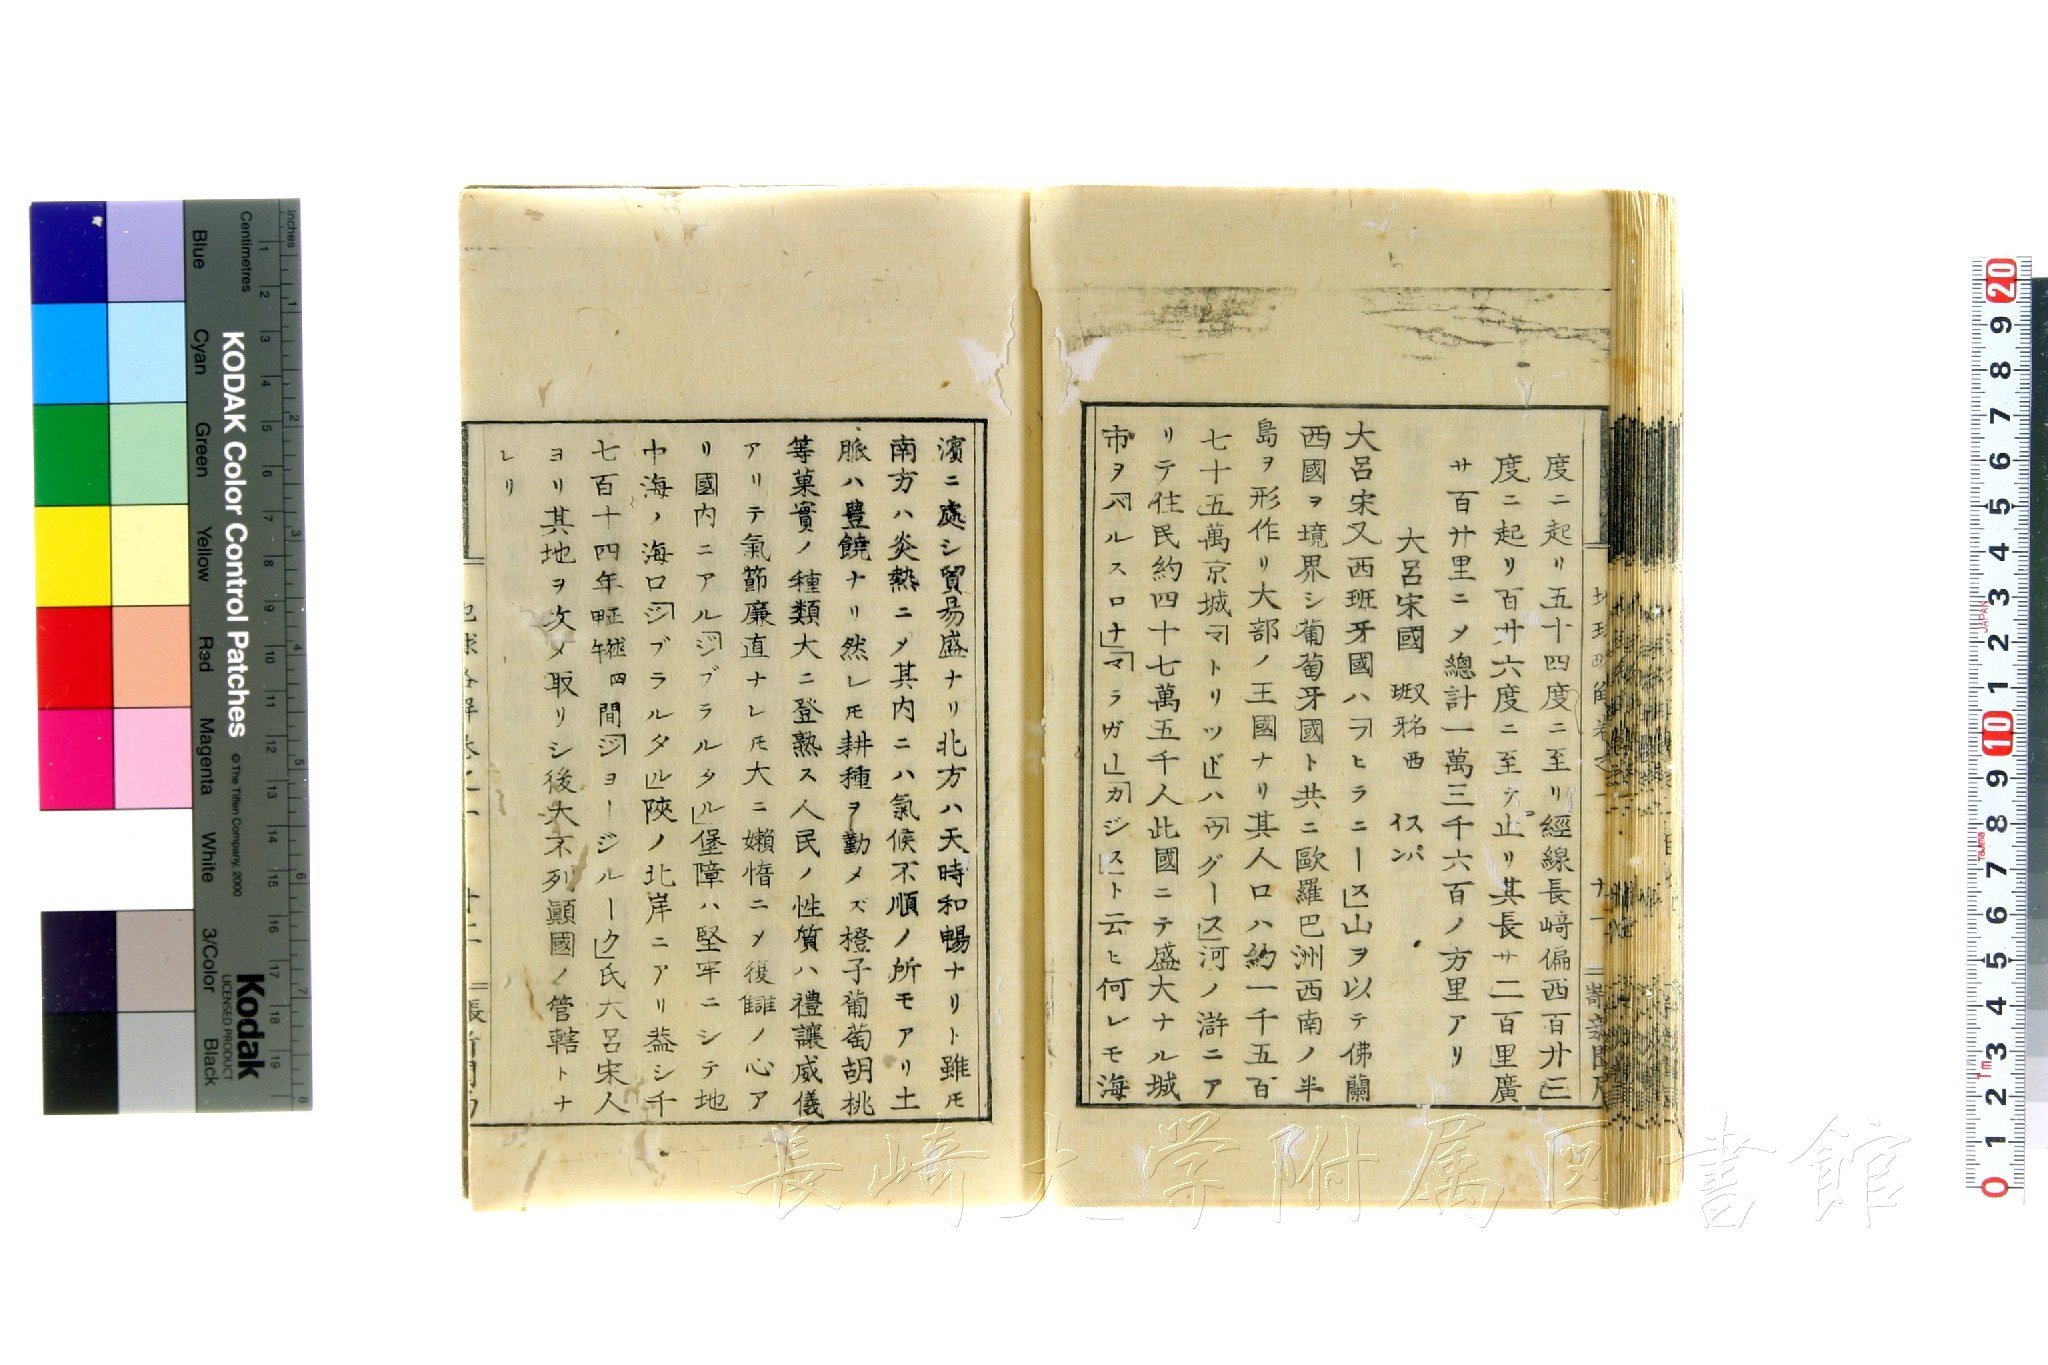 度ニ起リ五十四度ニ至リ經線長﨑偏西百廾三
度ニ起リ百廾六度ニ至テ止リ其長サ二百里廣
サ百廾里ニメ總計一萬三千六百ノ方里アリ
大呂宋國 㘞䂼西 イスパン
大呂宋又西班牙國ハ「ヲヒラニース」山ヲ以テ佛蘭
西國ヲ境界シ葡萄牙國ト共ニ歐羅巴洲西南ノ半
島ヲ形作リ大部ノ王國ナリ其人口ハ約一千五百
七十五萬京城「マトリツド」ハ「ウグース」河ノ滸ニア
リテ住民約四十七萬五千人此國ニテ盛大ナル城
市ヲ「バルスロナ」「マラガ」「カジス」ト云ヒ何レモ海
濱ニ處シ貿易盛ナリ北方ハ天時和暢ナリト雖モ
南方ハ炎熱ニメ其内ニハ氣候不順ノ所モアリ土
脈ハ豊饒ナリ然レモ耕種ヲ勤メズ橙子葡萄胡桃
等菓實ノ種類大ニ登熟ス人民ノ性質ハ禮讓威儀
アリテ氣節廉直ナレモ大ニ嬾惰ニメ復讎ノ心ア
リ國内ニアル「ジブラルタル」堡障ハ堅牢ニシテ地
中海ノ海口「ジブラルタル」陜ノ北岸ニアリ葢シ千
七百十四年 四間「ジヨージルーク」氏大呂宋人
ヨリ其地ヲ攻メ取リシ後大不列顚國ノ管轄トナ
レリ
十二
長崎大学附属図書館
KODAK Color Control Patches
© The Tiffen Company, 2000
Kodak
LICENSED PRODUCT
Inches
Centimetres
Blue
Cyan
Green
Yellow
Red
Magenta
White
3/Color
Black
JAPAN